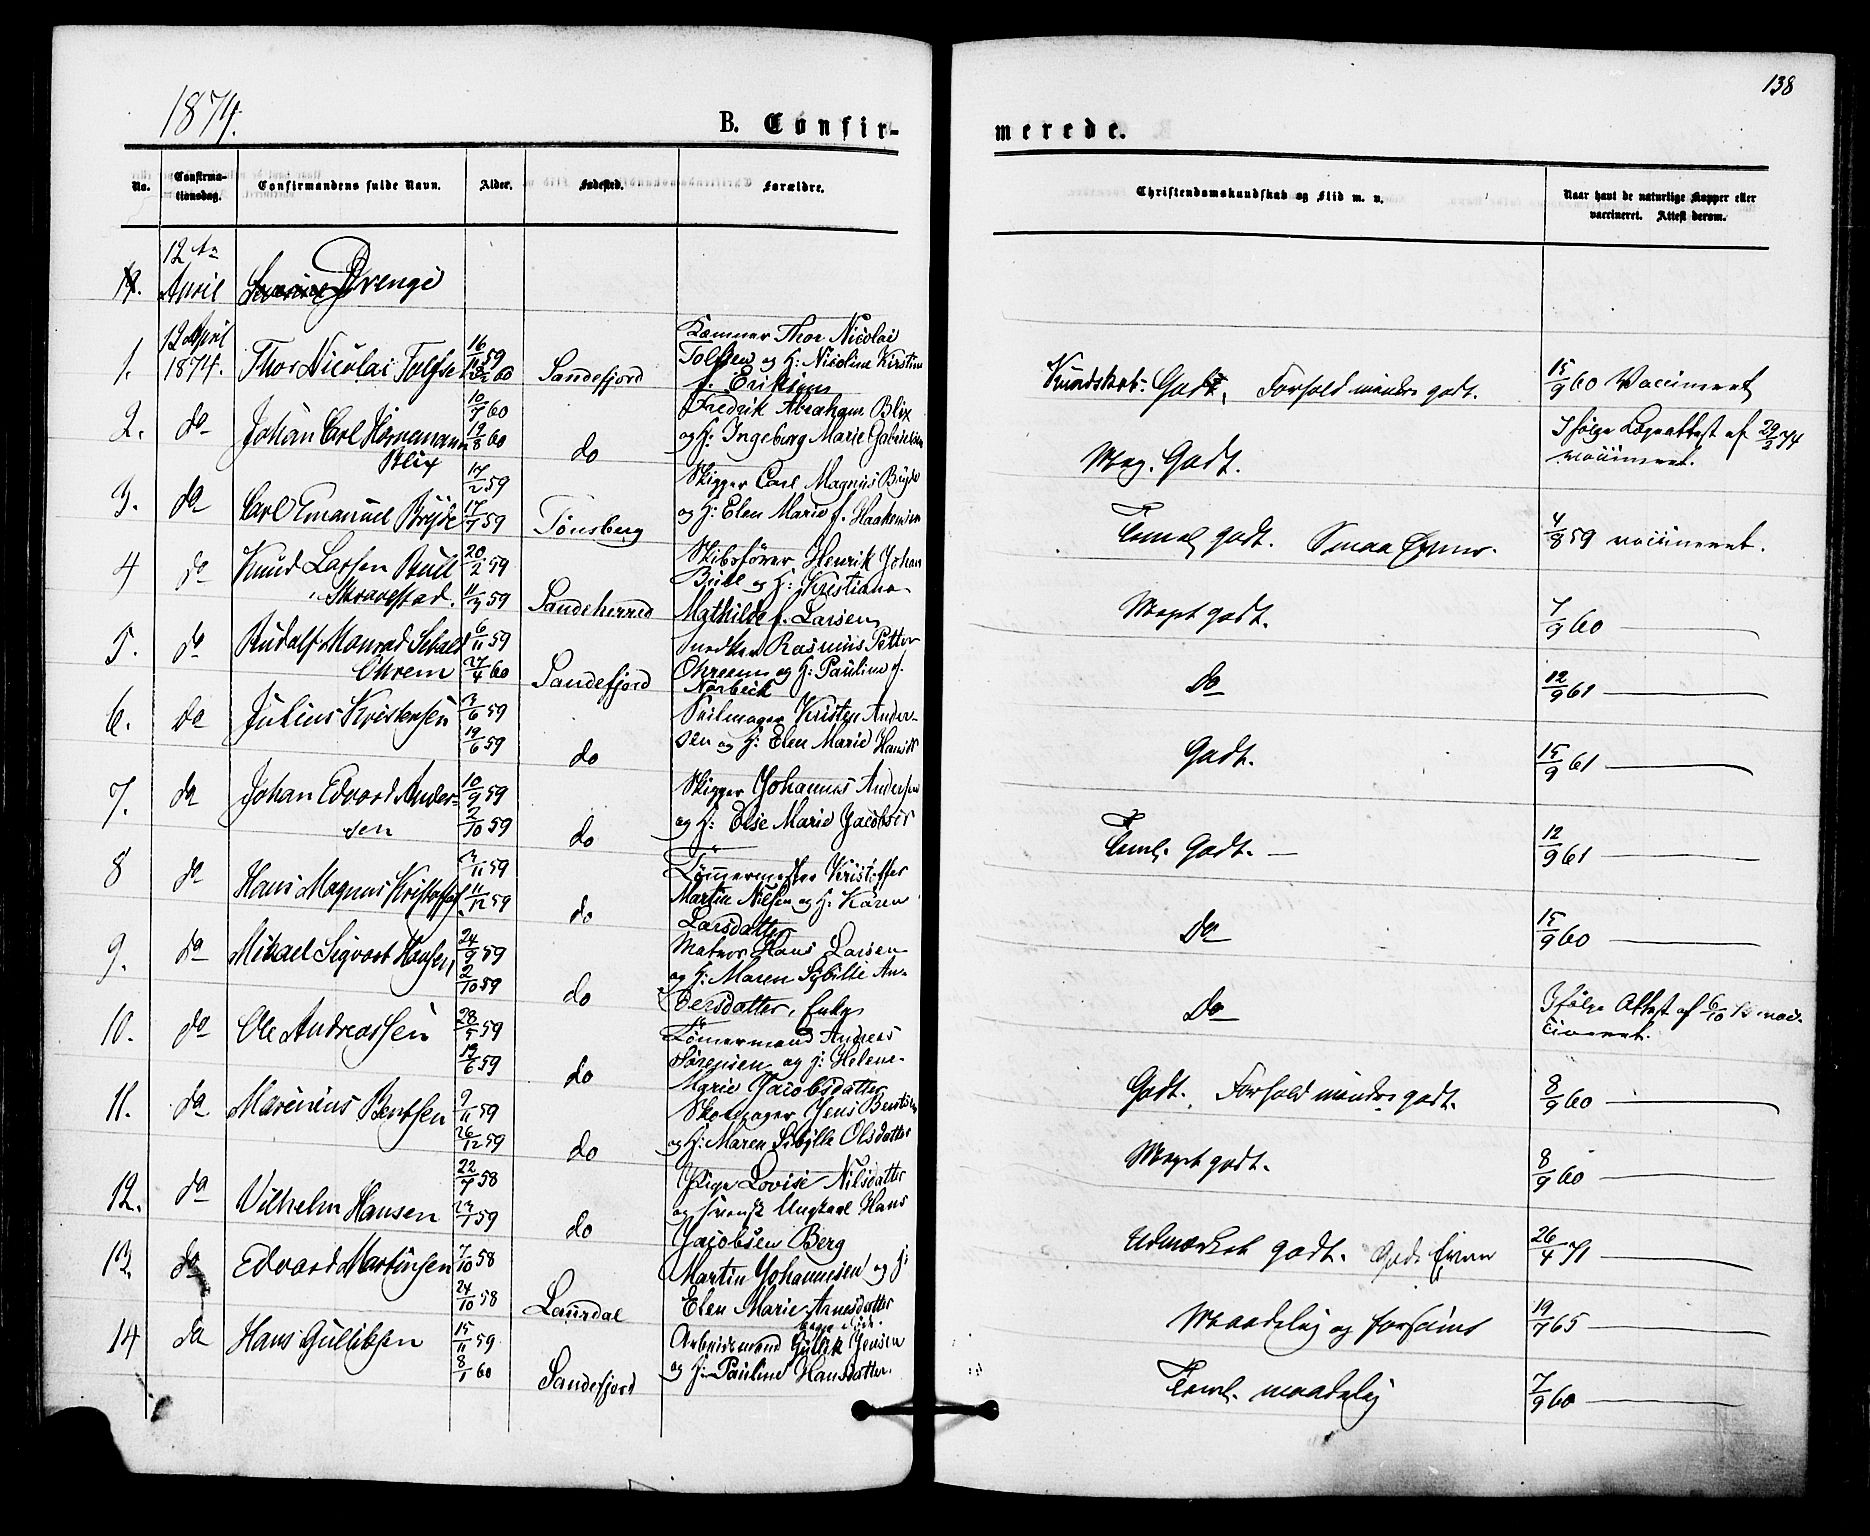 1874.
B. Confir-
merede.
138
No.
Confirma-
tionsdag.
Confirmandens fulde Navn.
Alder.
Fødested.
Forældre.
Christendomskundskab og Flid m. v.
Naar havt de naturlige Kopper eller
vaccineret. Attest derom.
12te
April
Drenge
1.
12 April
1874.
Thor Nicolai Tolfsen
16/11 59
60
Sandefjord
Kæmner Thor Nicolai
Tolfsen og H: Nicoline Kirstine
f. Eriksen
Kundskab: Godt, Forhold mindre godt.
15/9 60 Vaccineret
2.
do
Johan Carl Hornemann
Blix
10/7 60
19/8 60
do
Fredrik Abraham Blix
og H: Ingeborg Marie Gabrielsen
Meg. Godt.
Ifølge Lægeattest af 29/3 74
vaccineret.
3.
do
Carl Emanuel Bryde
17/2 59
17/4 59
Tønsberg
Skipper Carl Magnus Bryde
og H: Elen Marie f. Haakensen
Temel. godt. Smaa Evner.
4/8 59 vaccineret.
4
do
Knud Larsen Bull
Skravestad.
20/2 59
11/3 59
Sandeherred
Skibsfører Henrik Johan
Bull og H: Kristiane
Mathilde f. Larsen
Meget godt.
7/9 60
5.
do
Rudolf Monrad Sebald
Ohrem
6/11 59
27/4 60
Sandefjord
Snedker Rasmus Petter
Ohreem og H: Pauline f.
Norbeck
Do
12/9 61
6.
do
Julius Kristensen
3/6 59
19/6 59
do
Seilmager Kristen Ander-
sen og H: Elen Marie
Godt.
15/9 61
7.
do
Johan Edvard Ander-
sen
10/9 59
2/10 59
do
Skipper Johannes Andersen
og H: Else Marie Jacobsen
Teml. Godt.
12/9 61
8
do
Hans Magnus Kristoffersen
3/11 59
11/12 59
do
Tømmermester Kristoffer
Martin Nilsen og H: Karen
Larsdatter
Do
15/9 60
9.
do
Mikael Sigvart Hansen
24/9 59
2/10 59
do
Matros Hans Larsen
og H: Maren Sibille An-
dersdatter, Enke
Do
Ifølge Attest af 6/10 73 vac-
cineret.
10.
do
Ole Andreassen
28/5 59
19/6 59
do
Tømmermand Andreas
Sørensen og H: Helene
Marie Jacobsdatter
Godt. Forhold mindre godt.
8/9 60
11.
do
Marinius Bentsen
9/11 59
26/12 59
do
Skomager Jens Bentsen
og H: Maren Sibylle Olsdatter
Meget godt.
8/9 60
12.
do
Vilhelm Hansen
22/7 58
23/1 59
do
Pige Lovise Nilsdatter
og svensk Ungkarl Hans
Jacobsen Berg
Udmærket godt. Gode Evner
26/4 71
13.
do
Edvard Martinsen
7/10 58
24/10 58
Laurdal
Martin Johannesen og H:
Elen Marie Arnesdatter
Maadelig og forsømt
19/7 65
14
do
Hans Gulliksen
15/11 59
8/1 60
Sandefjord
Arbeidsmand Gullik Jensen
og H: Pauline Hansdatter.
Teml. maadelig
7/9 60